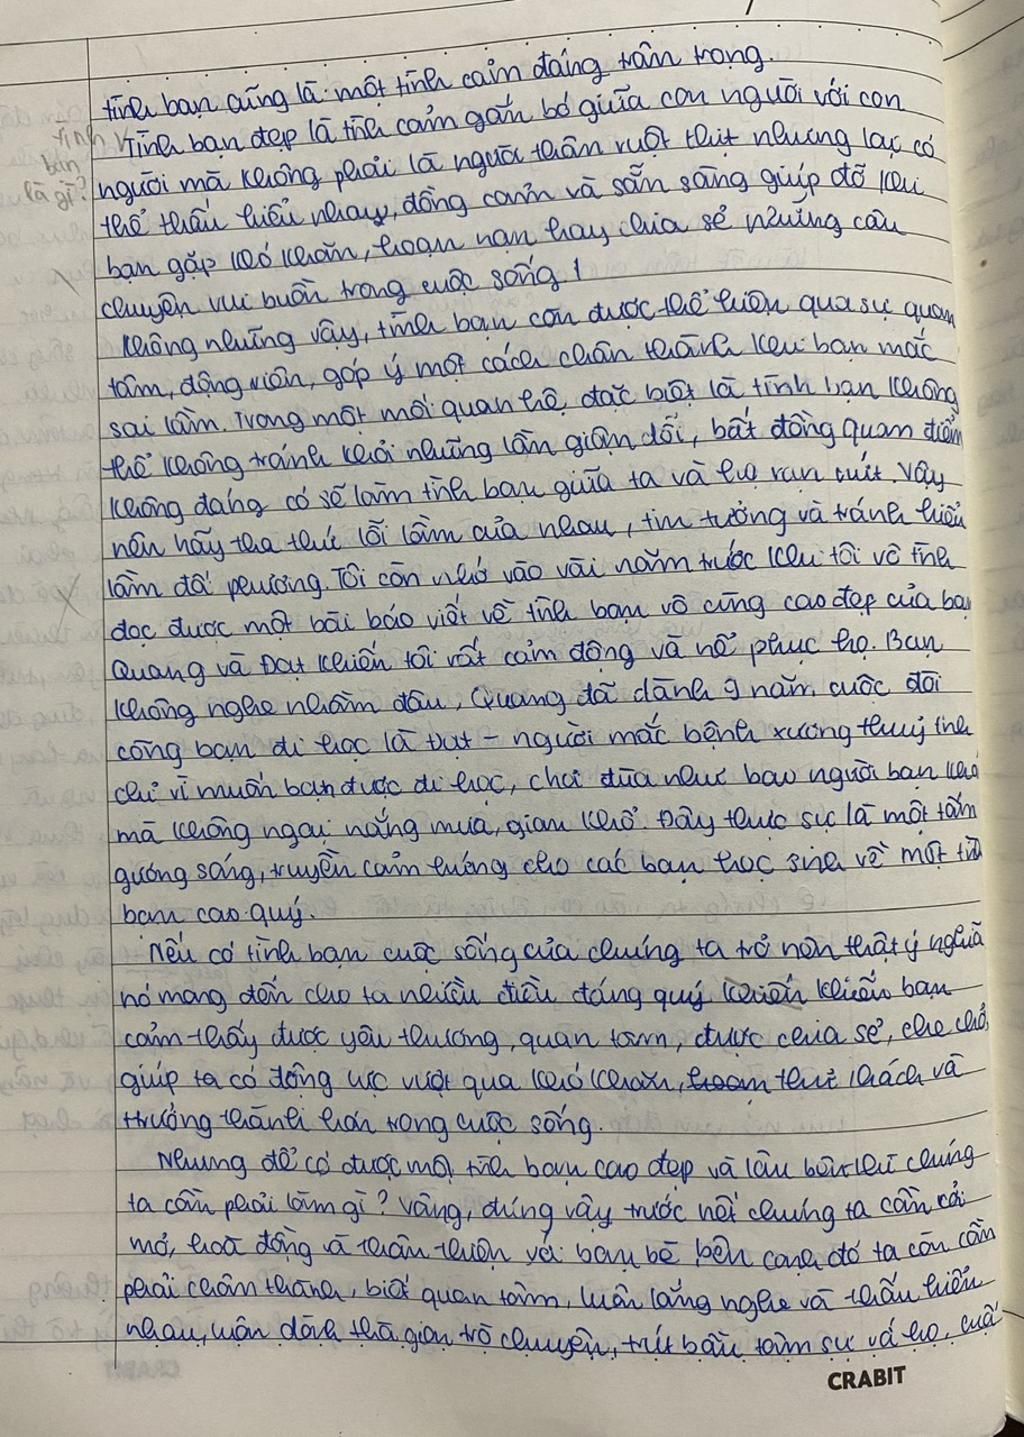 tình bạn cũng là một tình cảm đáng trân trọng.
Tình bạn đẹp là tình cảm gắn bó giữa con người với con
Tình bạn là gì?
người mà không phải là người thân ruột thịt nhưng lại có
thể thấu hiểu nhau, đồng cảm và sẵn sàng giúp đỡ khi
bạn gặp khó khăn, hoạn nạn hay chia sẻ những câu
chuyện vui buồn trong cuộc sống.
Không những vậy, tình bạn còn được thể hiện qua sự quan
tâm, động viên, góp ý một cách chân thành khi bạn mắc
sai lầm. Trong một mối quan hệ, đặc biệt là tình bạn không
thể không tránh khỏi những lần giận dỗi, bất đồng quan điểm
không đáng có sẽ làm tình bạn giữa ta và họ rạn nứt. Vậy
nên hãy tha thứ lỗi lầm của nhau, tin tưởng và tránh hiểu
lầm đối phương. Tôi còn nhớ vào vài năm trước khi tôi vô tình
đọc được một bài báo viết về tình bạn vô cùng cao đẹp của bạn
Quang và Đạt khiến tôi rất cảm động và nể phục họ. Bạn
không nghe nhầm đâu, Quang đã dành 9 năm cuộc đời
cõng bạn đi học là Đạt - người mắc bệnh xương thuỷ tinh
chỉ vì muốn bạn được đi học, chơi đùa như bao người bạn khá
mà không ngại nắng mưa, gian khổ. Đây thực sự là một tấm
gương sáng, truyền cảm hứng cho các bạn học sinh về một tình
bạn cao quý.
Nếu có tình bạn cuộc sống của chúng ta trở nên thật ý nghĩa
nó mang đến cho ta nhiều điều đáng quý khiến khiến bạn
cảm thấy được yêu thương, quan tâm, được chia sẻ, che chở,
giúp ta có động lực vượt qua khó khăn, hoạn thử thách và
trưởng thành hơn trong cuộc sống.
Nhưng để có được một tình bạn cao đẹp và lâu bền thì chúng
ta cần phải làm gì? Vâng, đúng vậy trước hết chúng ta cần cởi
mở, hoà đồng và thân thiện với bạn bè bên cạnh đó ta còn cần
phải chân thành, biết quan tâm, luôn lắng nghe và thấu hiểu
nhau, luôn dành thời gian trò chuyện, trút bầu tâm sự với họ, cuối
CRABIT